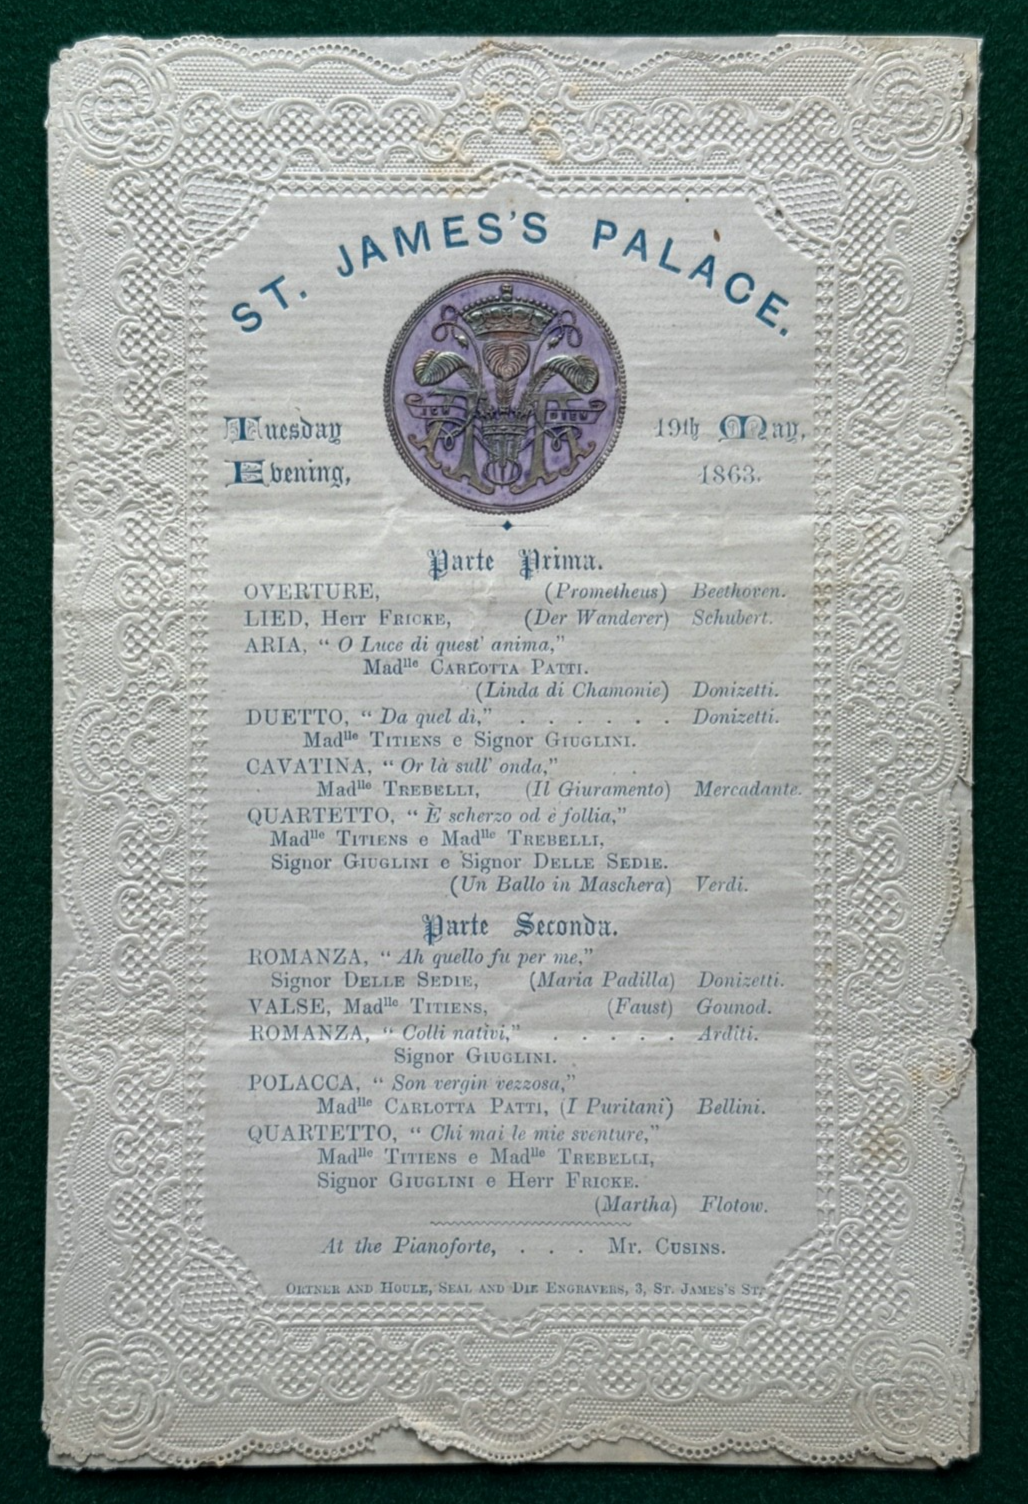 ST. JAMES'S PALACE.
Tuesday 19th May,
Evening, 1863.
Parte Prima.
OVERTURE, (Prometheus) Beethoven.
LIED, Herr FRICKE, (Der Wanderer) Schubert.
ARIA, “ O Luce di quest' anima,”
Madlle CARLOTTA PATTI.
(Linda di Chamonie) Donizetti.
DUETTO, “ Da quel dì,” . . . . . . Donizetti.
Madlle TITIENS e Signor GIUGLINI.
CAVATINA, “ Or là sull' onda,”
Madlle TREBELLI, (Il Giuramento) Mercadante.
QUARTETTO, “ È scherzo od è follia,”
Madlle TITIENS e Madlle TREBELLI,
Signor GIUGLINI e Signor DELLE SEDIE.
(Un Ballo in Maschera) Verdi.
Parte Seconda.
ROMANZA, “ Ah quello fu per me,”
Signor DELLE SEDIE, (Maria Padilla) Donizetti.
VALSE, Madlle TITIENS, (Faust) Gounod.
ROMANZA, “ Colli nativi,” . . . . . Arditi.
Signor GIUGLINI.
POLACCA, “ Son vergin vezzosa,”
Madlle CARLOTTA PATTI, (I Puritani) Bellini.
QUARTETTO, “ Chi mai le mie sventure,”
Madlle TITIENS e Madlle TREBELLI,
Signor GIUGLINI e Herr FRICKE.
(Martha) Flotow.
At the Pianoforte, . . . Mr. CUSINS.
ORTNER AND HOULE, SEAL AND DIE ENGRAVERS, 3, ST. JAMES'S ST.